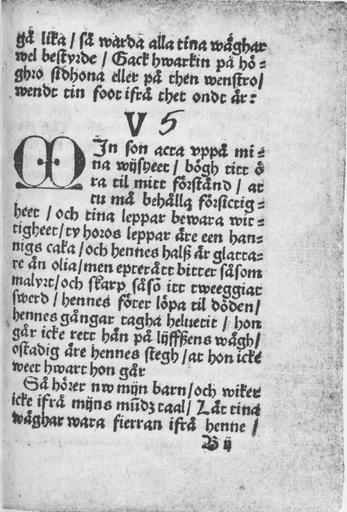 gå lika / så warda alla tina wäghar
wel bestyrde / Gack hwarkin på hö⸗
ghro sidhona eller på then wenstro/
wendt tin foot ifrå thet ondt är:
V 5
MIn son acta vppå mi⸗
na wijsheet / bögh titt ö
ra til mitt förstånd / at
tu må behålla försictig⸗
heet / och tina leppar bewara wit⸗
tigheet/ ty horos leppar äre een han⸗
nigs caka / och hennes halß är glatta⸗
re än olia/men epterått bitter såsom
malyrt/och skarp såsõ itt tweeggiat
swerd / hennes föter löpa til döden/
hennes gångar tagha heluetit / hon
går icke rett hän på lijffßens wägh/
ostadig äre hennes stegh / at hon icke
weet hwart hon går
Så hörer nw mijn barn/och wiker
icke ifrå mijns mūdz taal/ Låt tina
wäghar wara fierran ifrå henne /
B ij